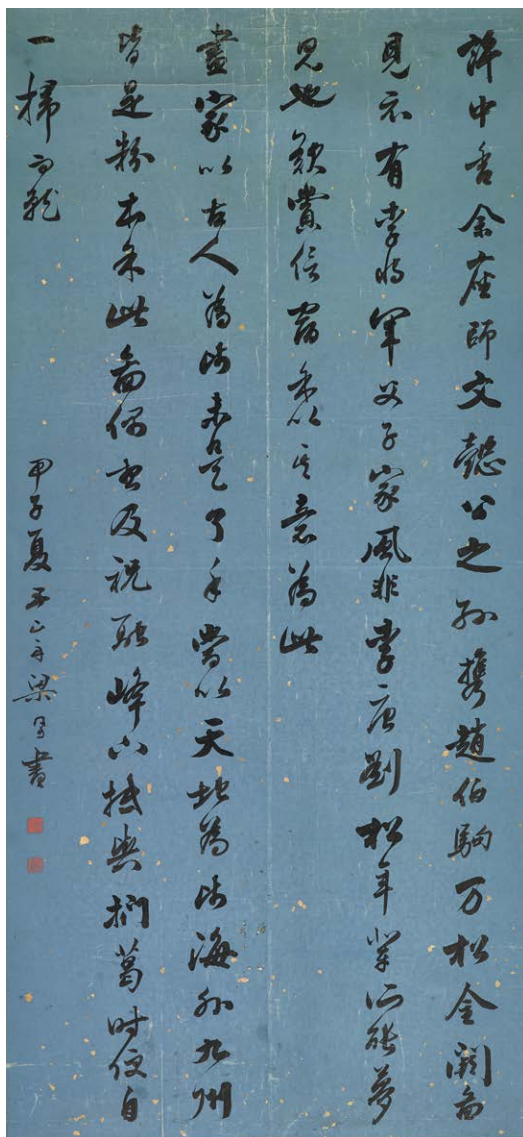 許中舍余座師文懿公之孫攜趙伯駒万松金闕圖
見示有李將軍父子家風非李唐劉松年輩所能夢
見也歎賞信宿余以其意為此
畫家以古人為師未是了手嘗以天地為師海外九州
皆是粉本余此圖偶書及祝融峰下與捫葛時便自
一掃而就
甲子夏五山舟梁同書